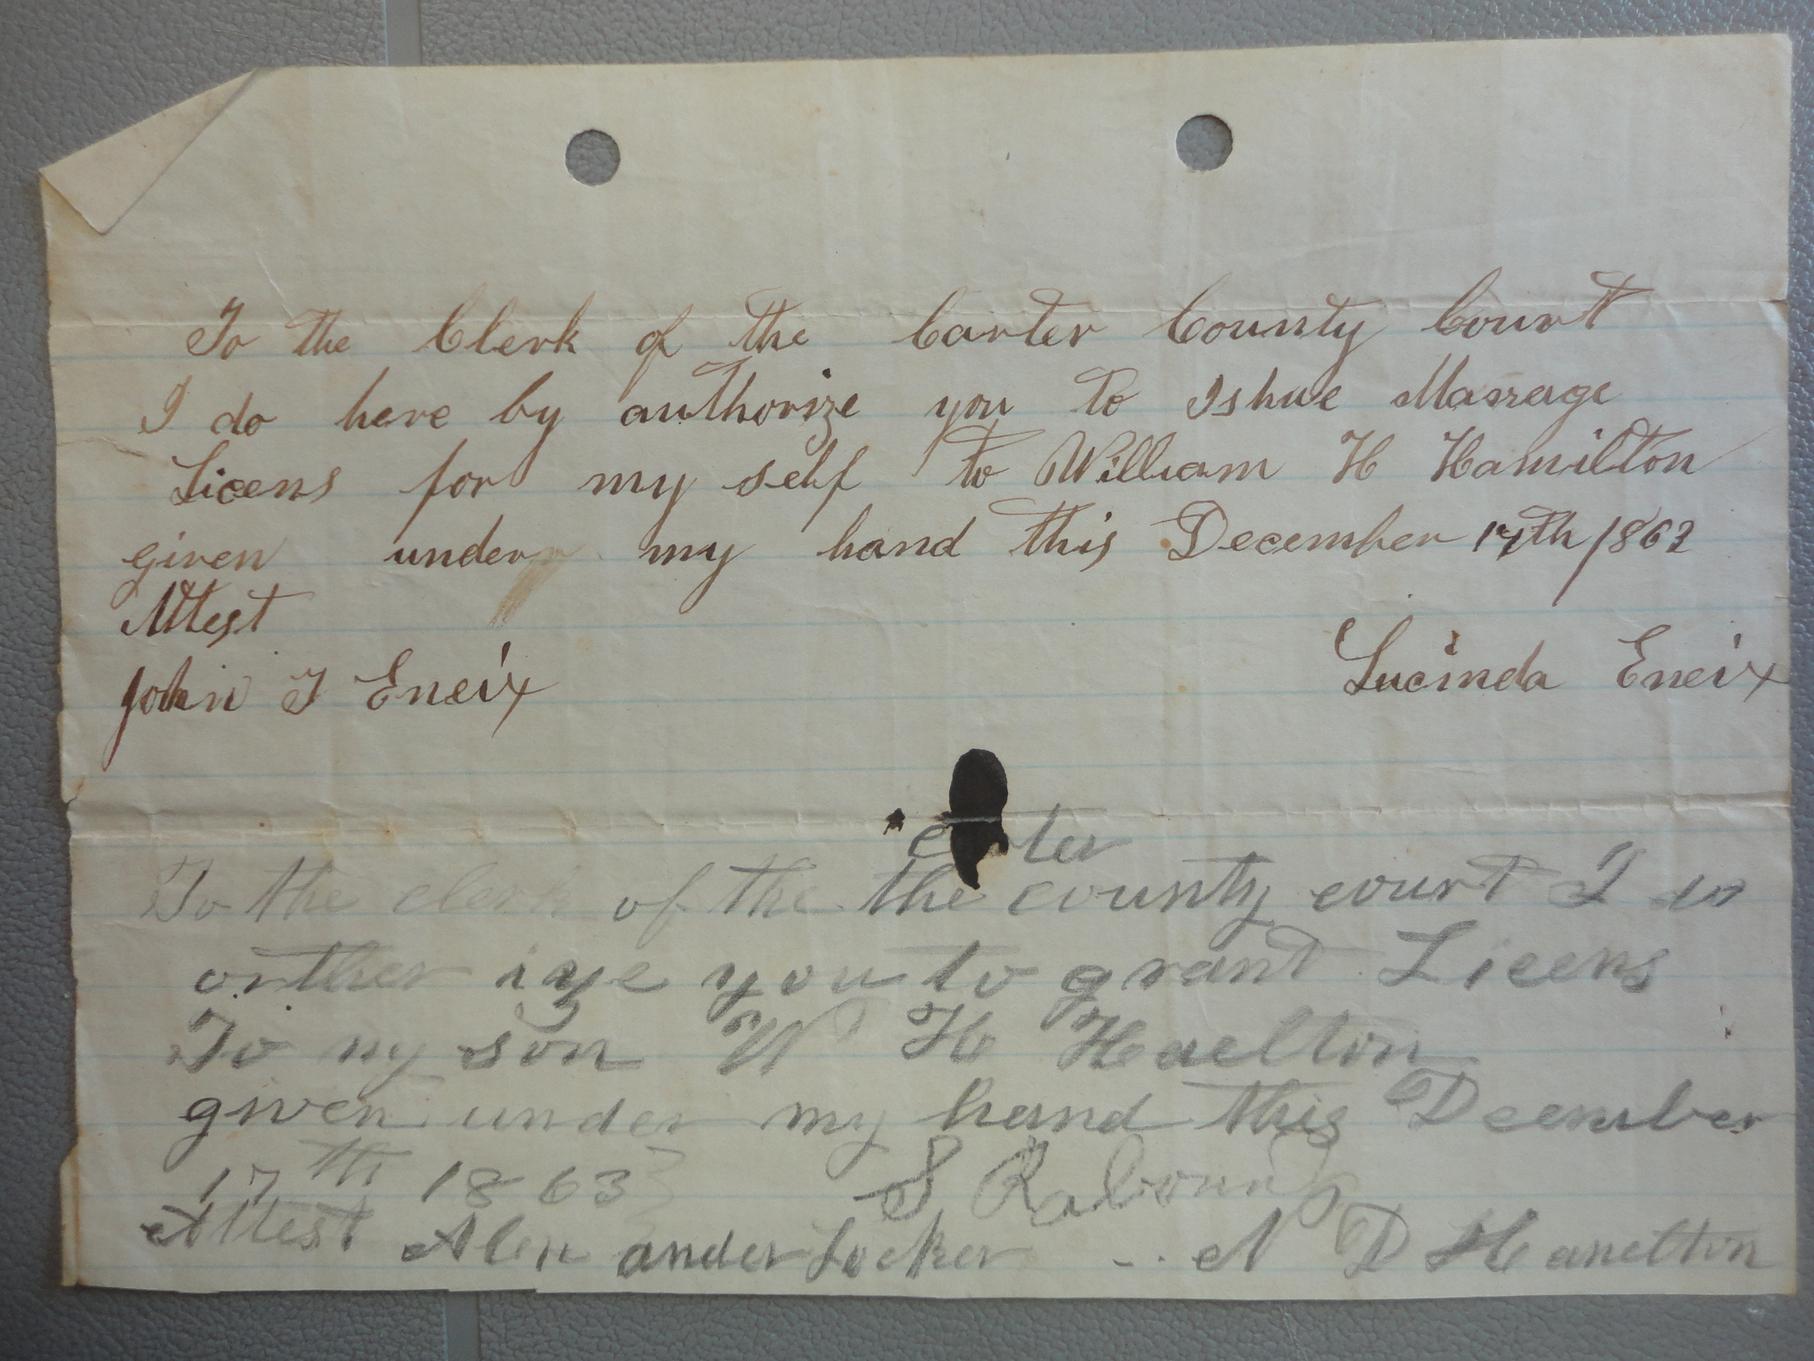 To the Clerk of the Carter County Court
I do here by authorize you to Ishue Marrage
Licens for my self to William H Hamilton
given under my hand this December 17th 1863
Attest
John T Eneix
Lucinda Eneix
ter
To the clerk of the the county court I do
orther iye you to grant Licens
To my son W H Haelton
given under my hand this December
17th 1863
S Rabourn
Attest Alen ander N D Hamelton